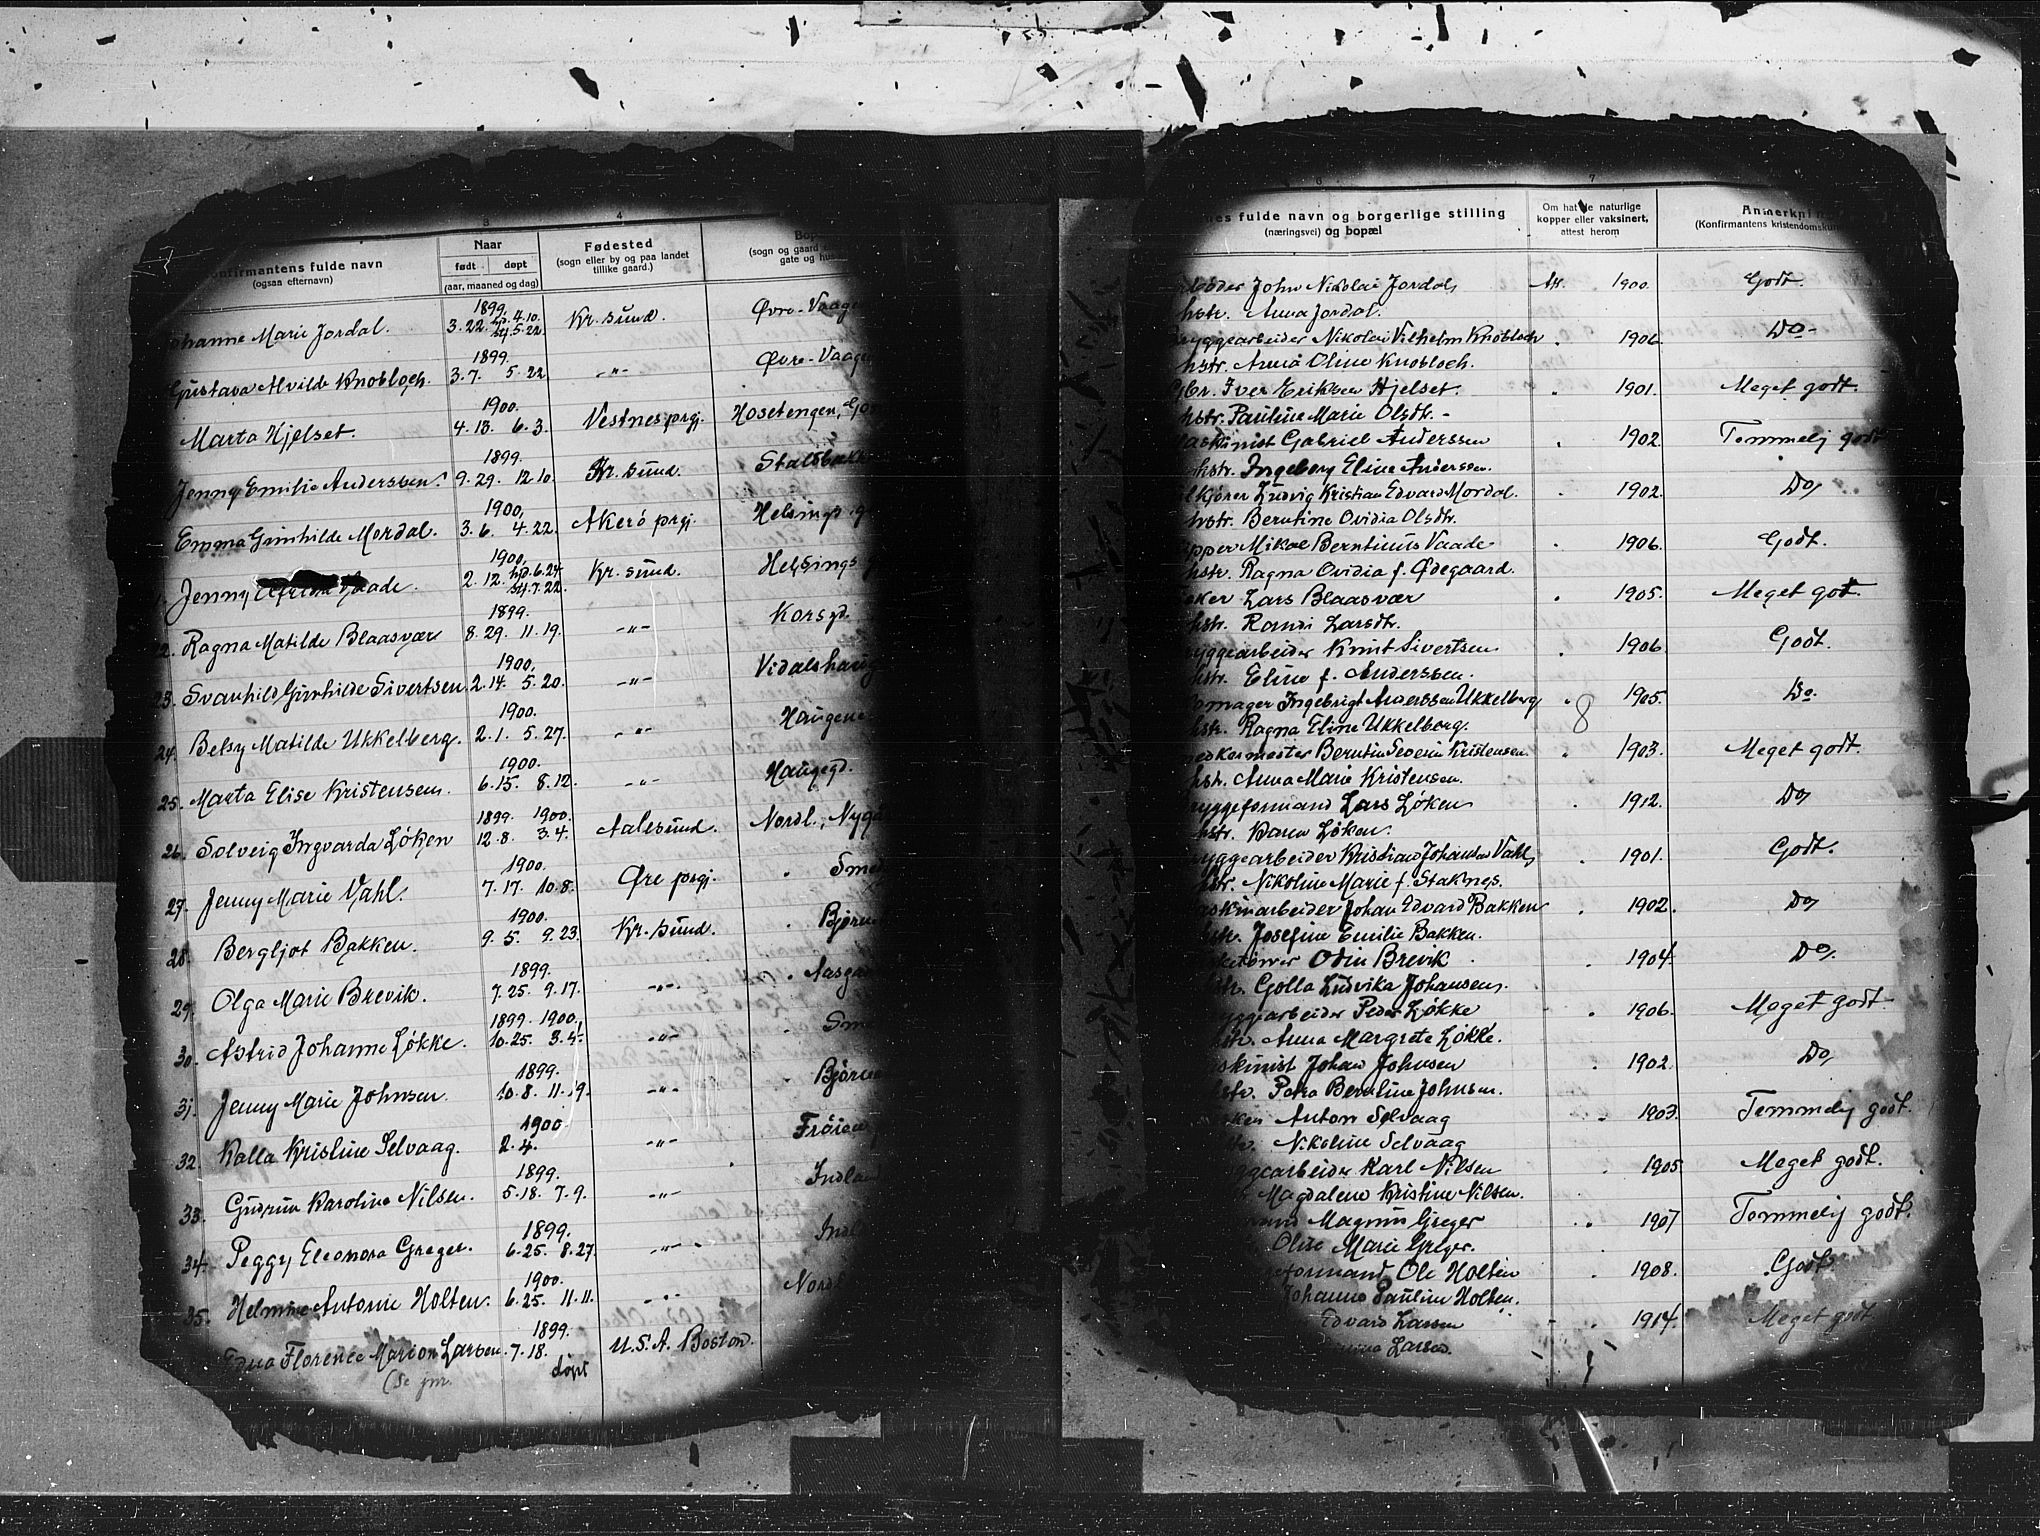 3
4
Konfirmantens fulde navn
(ogsaa efternavn)
Naar
født døpt
(aar, maaned og dag)
Fødested
(sogn eller by og paa landet
tillike gaard.)
(sogn og gaard
gate og
1899.
Johanne Marie Jordal. 3.22. 4.10. Kr. sund. Øvre-Vaagen
5.22.
1899.
Gustava Alvilde Knobloch. 3.7. 5.22 -"- Øvre-Vaagen
1900.
Marta Hjelset. 4.13. 6.3. Vestnes prgj. Hosetengen,
1899.
Jenny Emilie Anderssen. 9.29. 12.10 Kr. sund.
1900.
Emma Gunhilde Mordal. 3.6. 4.22. Akerö prgj. Helsingd.
1900.
Jenny Vaade. 2.12. hjd. 6.24. Kr. sund. Helsings
7.22.
1899.
22. Ragna Matilde Blaasvær 8.29. 11.19. -"- Korsgd.
1900.
23. Svanhild Gunhilde Sivertsen. 2.14. 5.20. -"- Vidalshaug
1900.
24. Betsy Matilde Ukkelberg. 2.1. 5.27. -"- Haugene
1900.
25. Marta Elise Kristensen. 6.15. 8.12. -"- Haugegd.
1899. 1900.
26. Solveig Ingvarda Løken 12.8. 3.4. Aalesund. Nordl., Nyg
1900.
27. Jenny Marie Vahl. 7.17. 10.8. Øre prgj. " Sme
1900.
28. Bergljot Bakken. 9.5. 9.23. Kr. sund. " Bjørn
1899.
29. Olga Marie Brevik. 7.25. 9.17. -"- " Aasga
1899. 1900.
30. Astrid Johanne Løkke. 10.25. 3.4. -"- " Sme
1899.
31. Jenny Marie Johnsen. 10.8. 11.19. -"- " Bjørn
1900
32. Kalla Kristine Selvaag. 2.4. -"- Frøien
1899.
33. Gudrun Karoline Nilsen. 5.18. 7.9. -"- Indlan
1899.
34. Peggy Eleonora Greger. 6.25. 8.27. -"- Indl
1900.
35. Helmine Antonie Holten. 6.25. 11.11. -"- Nordl
1899.
Edna Florence Marion Larsen. 7.18. U.S.A. Boston.
(Se døpt
6
7
nes fulde navn og borgerlige stilling
(næringsvei) og bopæl
Om hat de naturlige
kopper eller vaksinert,
attest herom
Anmerkni
(Konfirmantens kristendomskun
John Nikolai Jordal, Att. 1900. Godt.
hstr. Anna Jordal.
Bryggearbeider Nikolai Vilhelm Knobloch " 1906. Do-
hstr. Anna Oline Knobloch.
Gbr. Iver Eriksen Hjelset. " 1901. Meget godt.
hstr. Pauline Marie Olsdtr. -
Maskinist Gabriel Anderssen " 1902. Temmelig godt
hstr. Ingeborg Eline Anderssen.
Ludvig Kristian Edvard Mordal. " 1902. Do,
hstr. Berntine Ovidia Olsdtr.
Mikal Berntinus Vaade " 1906. Godt.
hstr. Ragna Ovidia f. Ødegaard.
Lars Blaasvær " 1905. Meget godt.
hstr. Randi Larsdtr.
Bryggearbeider Knut Sivertsen " 1906. Godt.
hstr. Eline f. Anderssen.
Skomager Ingebrigt Anderssen Ukkelberg " 8 1905. Do.
hstr. Ragna Eline Ukkelberg.
Berntin Severin Kristensen. " 1903. Meget godt.
hstr. Anna Marie Kristensen.
Bryggeformand Lars Løken " 1912. Do,
hstr. Karen Løken.
Bryggearbeider Kristian Johansen Vahl, " 1901. Godt.
hstr. Nikoline Marie f. Staknes.
Maskinarbeider Johan Edvard Bakken " 1902. Do,
hstr. Josefine Emilie Bakken.
Odin Brevik " 1904. Do.
hstr. Golla Ludvika Johansen.
Bryggearbeider Peder Løkke " 1906. Meget godt
hstr. Anna Margrete Løkke.
Maskinist Johan Johnsen " 1902. Do,
hstr. Petra Berntine Johnsen.
Anton Selvaag " 1903. Temmelig godt.
Nikoline Selvaag
Bryggearbeider Karl Nilsen " 1905 Meget godt.
Magdalene Kristine Nilsen.
Magnus Greger " 1907 Temmelig godt.
Oline Marie Greger.
formand Ole Holten " 1908. Godt
Johanne Pauline Holten.
Edvard Larsen " 1914. Meget godt
Larsen.